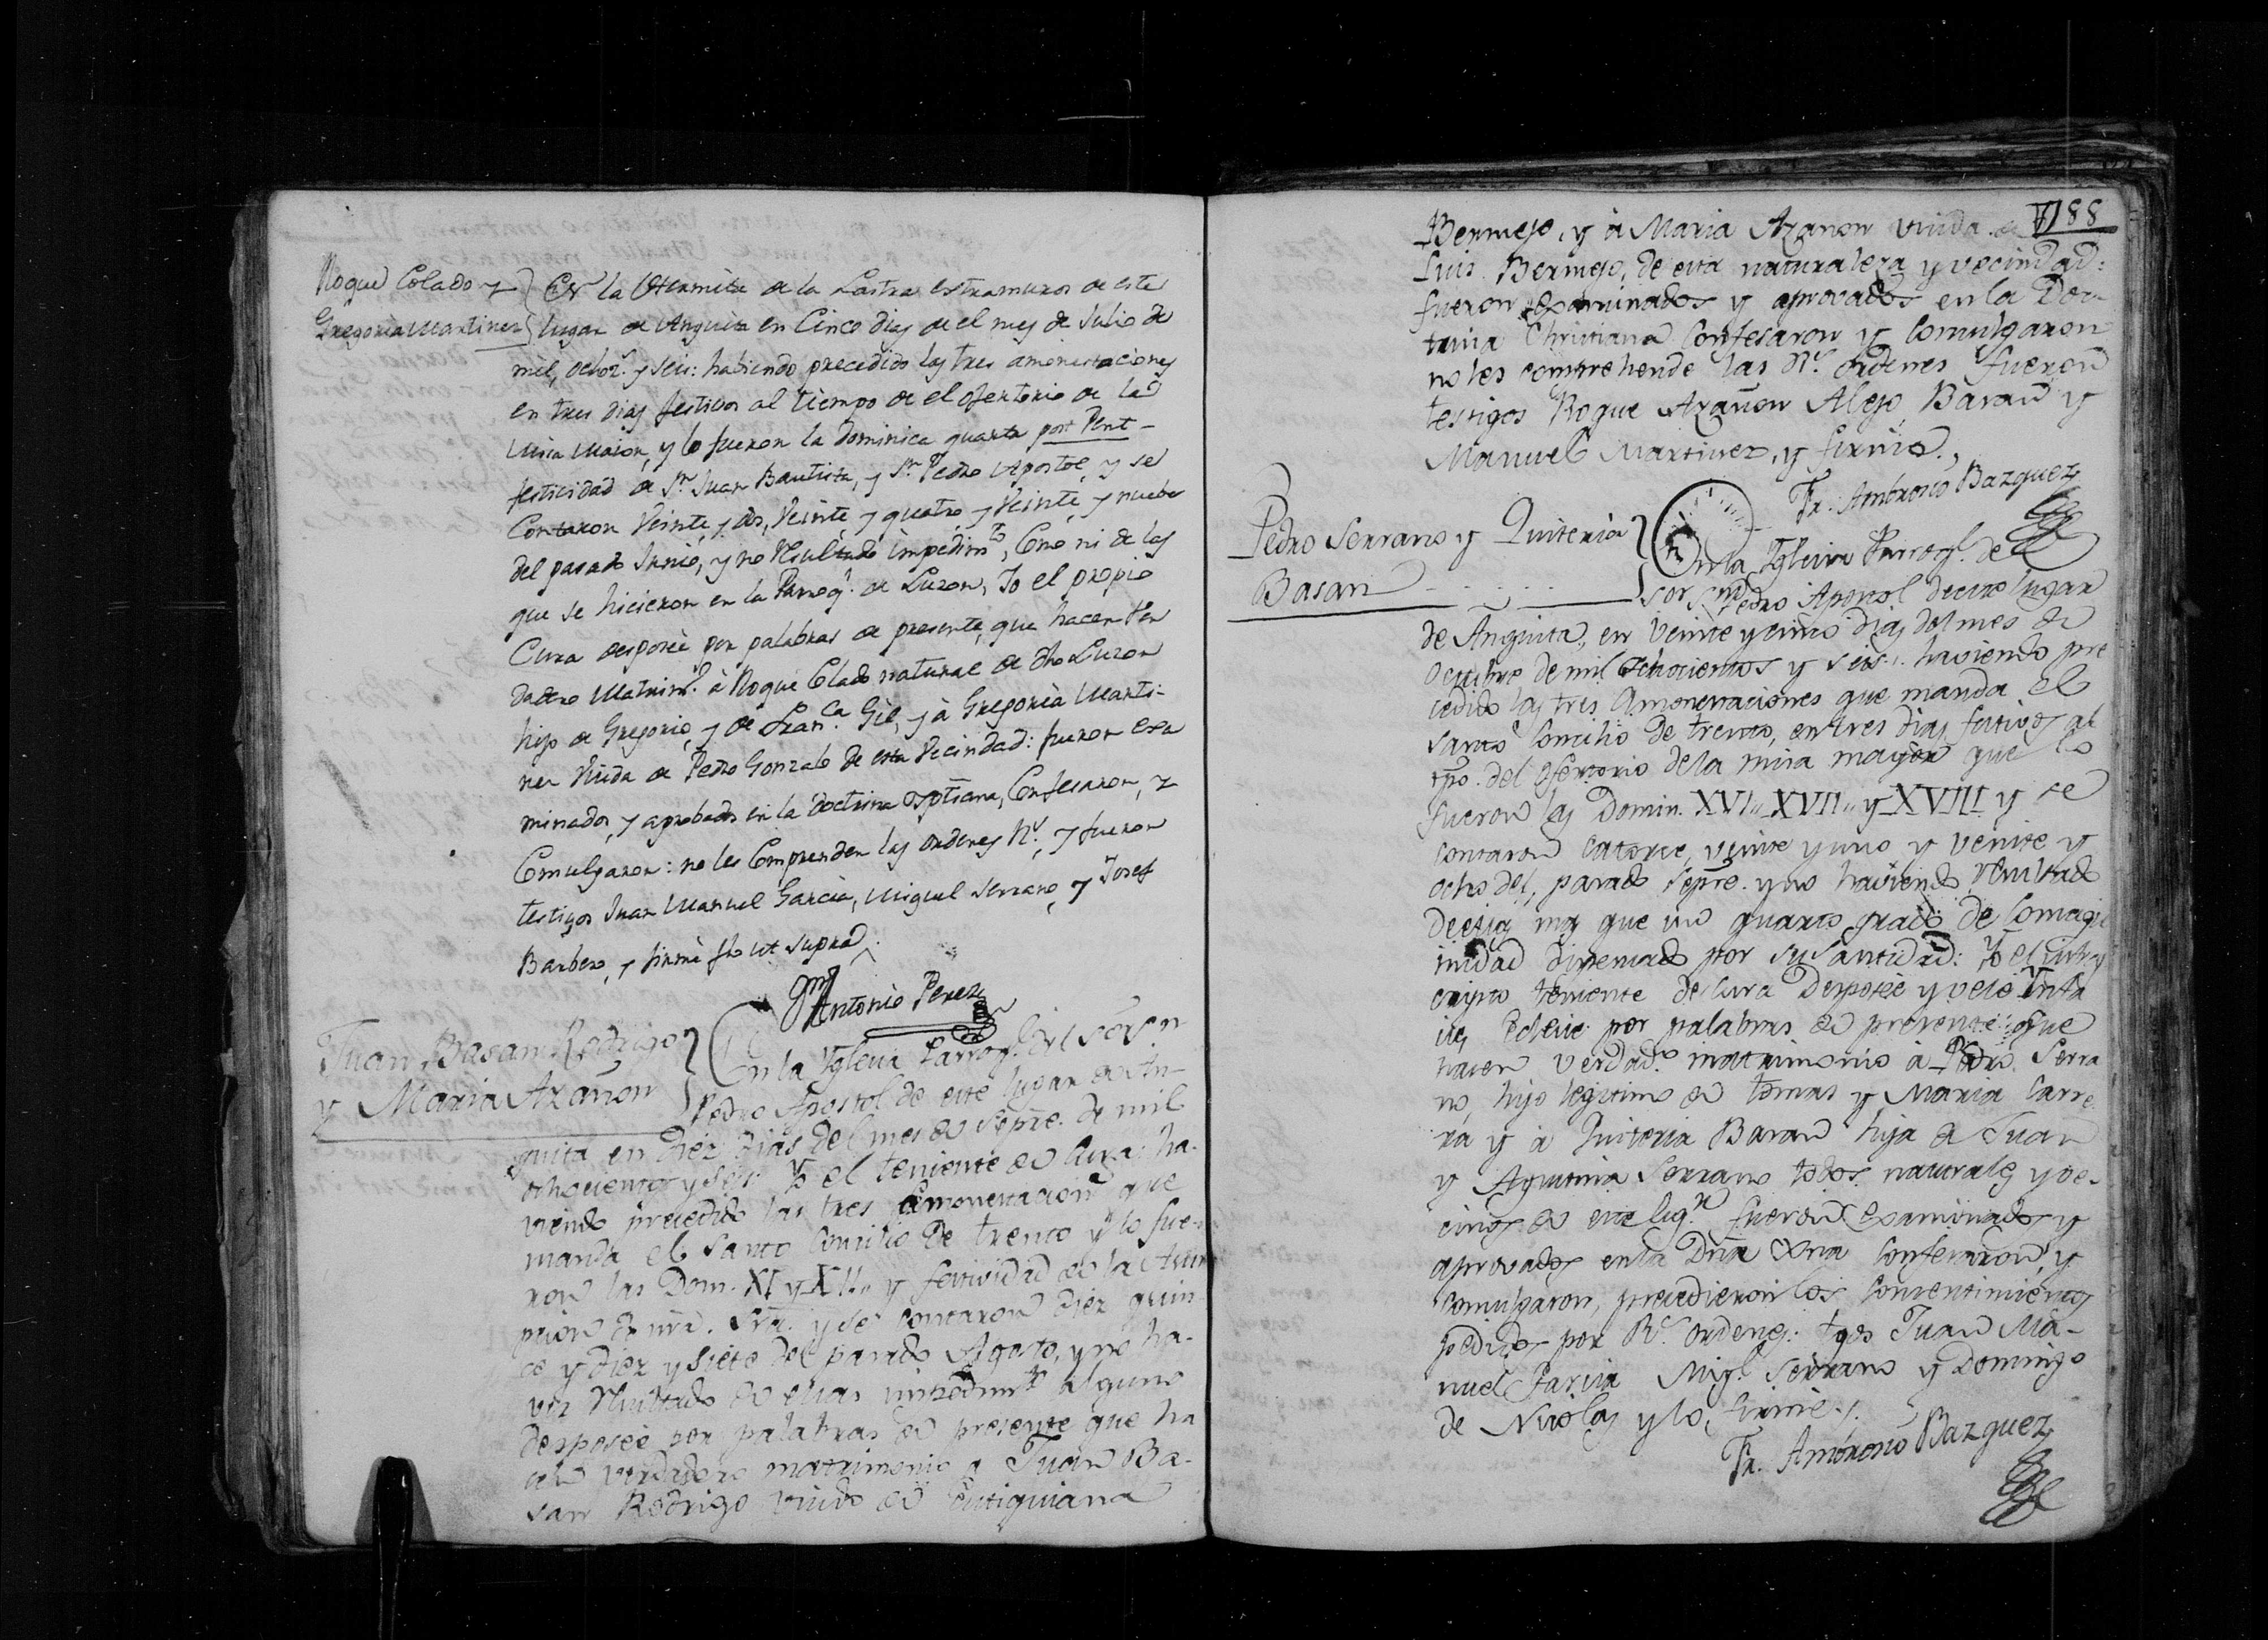 Roque Colado y
Gregoria Martinez
En la Hermita de la Lastra extramuros de este
lugar de Anguita en Cinco dias de el mes de Julio de
mil, ochoz.s y seis: habiendo precedido las tres amonestaciones
en tres dias festivos al tiempo de el ofertorio de la
Misa Maior, y lo fueron la Dominica quarta post Pent-
festividad de Sn. Juan Bautista, y Sn. Pedro Apostol, y se
Contaron Veinte y dos, Veinte y quatro y Veinte y nuebe
del pasado Junio, y no Resultado impedimto, Como ni de las
que se hicieron en la Parroql. de Luzon, Yo el propio
Cura desposè por palabras de presente, que hacen Ver
dadero Matrimo. à Roque Colado natural de dho Luzon
hijo de Gregorio, y de Fran.ca Gil, y à Gregoria Marti-
nez Viuda de Pedro Gonzalo de esta Vecindad: fueron exa
minados, y aprobados en la doctrina Xptiana, Confesaron, y
Comulgaron: no les Comprenden las ordenes Rs., y fueron
testigos Juan Manuel Garcia, Miguel Serrano, y Josef
Barbero, y firmè fho ut supra.
Antonio Perez
Juan Basan Rodrigo
y Maria Azañon
En la Iglesia Parroql. del Sor. Sn.
Pedro Apostol de este lugar de An-
guita en Diez dias del mes de Sepre. de mil
ochocientos y seis: Yo el teniente de Cura ha-
viendo precedido las tres amonestacions que
manda el Santo Concilio de trento y lo fue-
ron las Dom. XI y XII y festividad de la Asum
pcion de nra. Sra. y se contaron diez quin-
ce y diez y siete del pasado Agosto, y no ha-
ver Resultado de ellas impedimto alguno
desposèe por palabras de presente que ha
cen verdadero matrimonio a Juan Ba-
san Rodrigo viudo de Eutiquiana
VI 88
Bermejo, y à Maria Azanon viuda de
Luis Bermejo, de esta naturaleza y vecindad:
fueron examinados y aprovados en la Doc-
trina Christiana Confesaron y Comulgaron
no les comprehende las Rs. ordenes fueron
testigos Roque Azañon Alejo Basan y
Manuel Martinez, y firmè.
Fr. Ambrosio Bazquez
Pedro Serrano y Quiteria
Basan
En la Iglesia Parroql. de el
Sor Sn. Pedro Apostol de este lugar
de Anguita, en Veinte y cinco dias del mes de
Octubre de mil Ochocientos y seis. haviendo pre
cedido las tres Amonestaciones que manda el
santo Concilio de trento, en tres dias festivos al
tpo. del ofertorio de la misa mayor que lo
fueron las Domin. XVI XVII y XVIII y se
contaron Catorce, veinte y uno y veinte y
ocho del, pasado sepre. y no haviendo Resultado
de ellas mas que un quarto grado de Consagui
nidad dispensado por su Santidad: Yo el infra
cripto teniente de Cura Desposèe y velè Infa
cie Eclesie por palabras de presente: que
hacen verdado. matrimonio à Pedro Serra
no, hijo legitimo de tomas y Maria Carre
ra y à Quiteria Basan hija de Juan
y Agustina Serrano todos naturales y ve-
cinos de este lugr. fueron examinados y
aprovados en la Dna Xna Confesaron, y
Comulgaron, precedieron los Consentimientos
pedidos por Rs. ordenes: tgos Juan Ma-
nuel Garcia Migl. Serrano y Domingo
de Nicolas y lo, firmè.
Fr. Ambrosio Bazquez